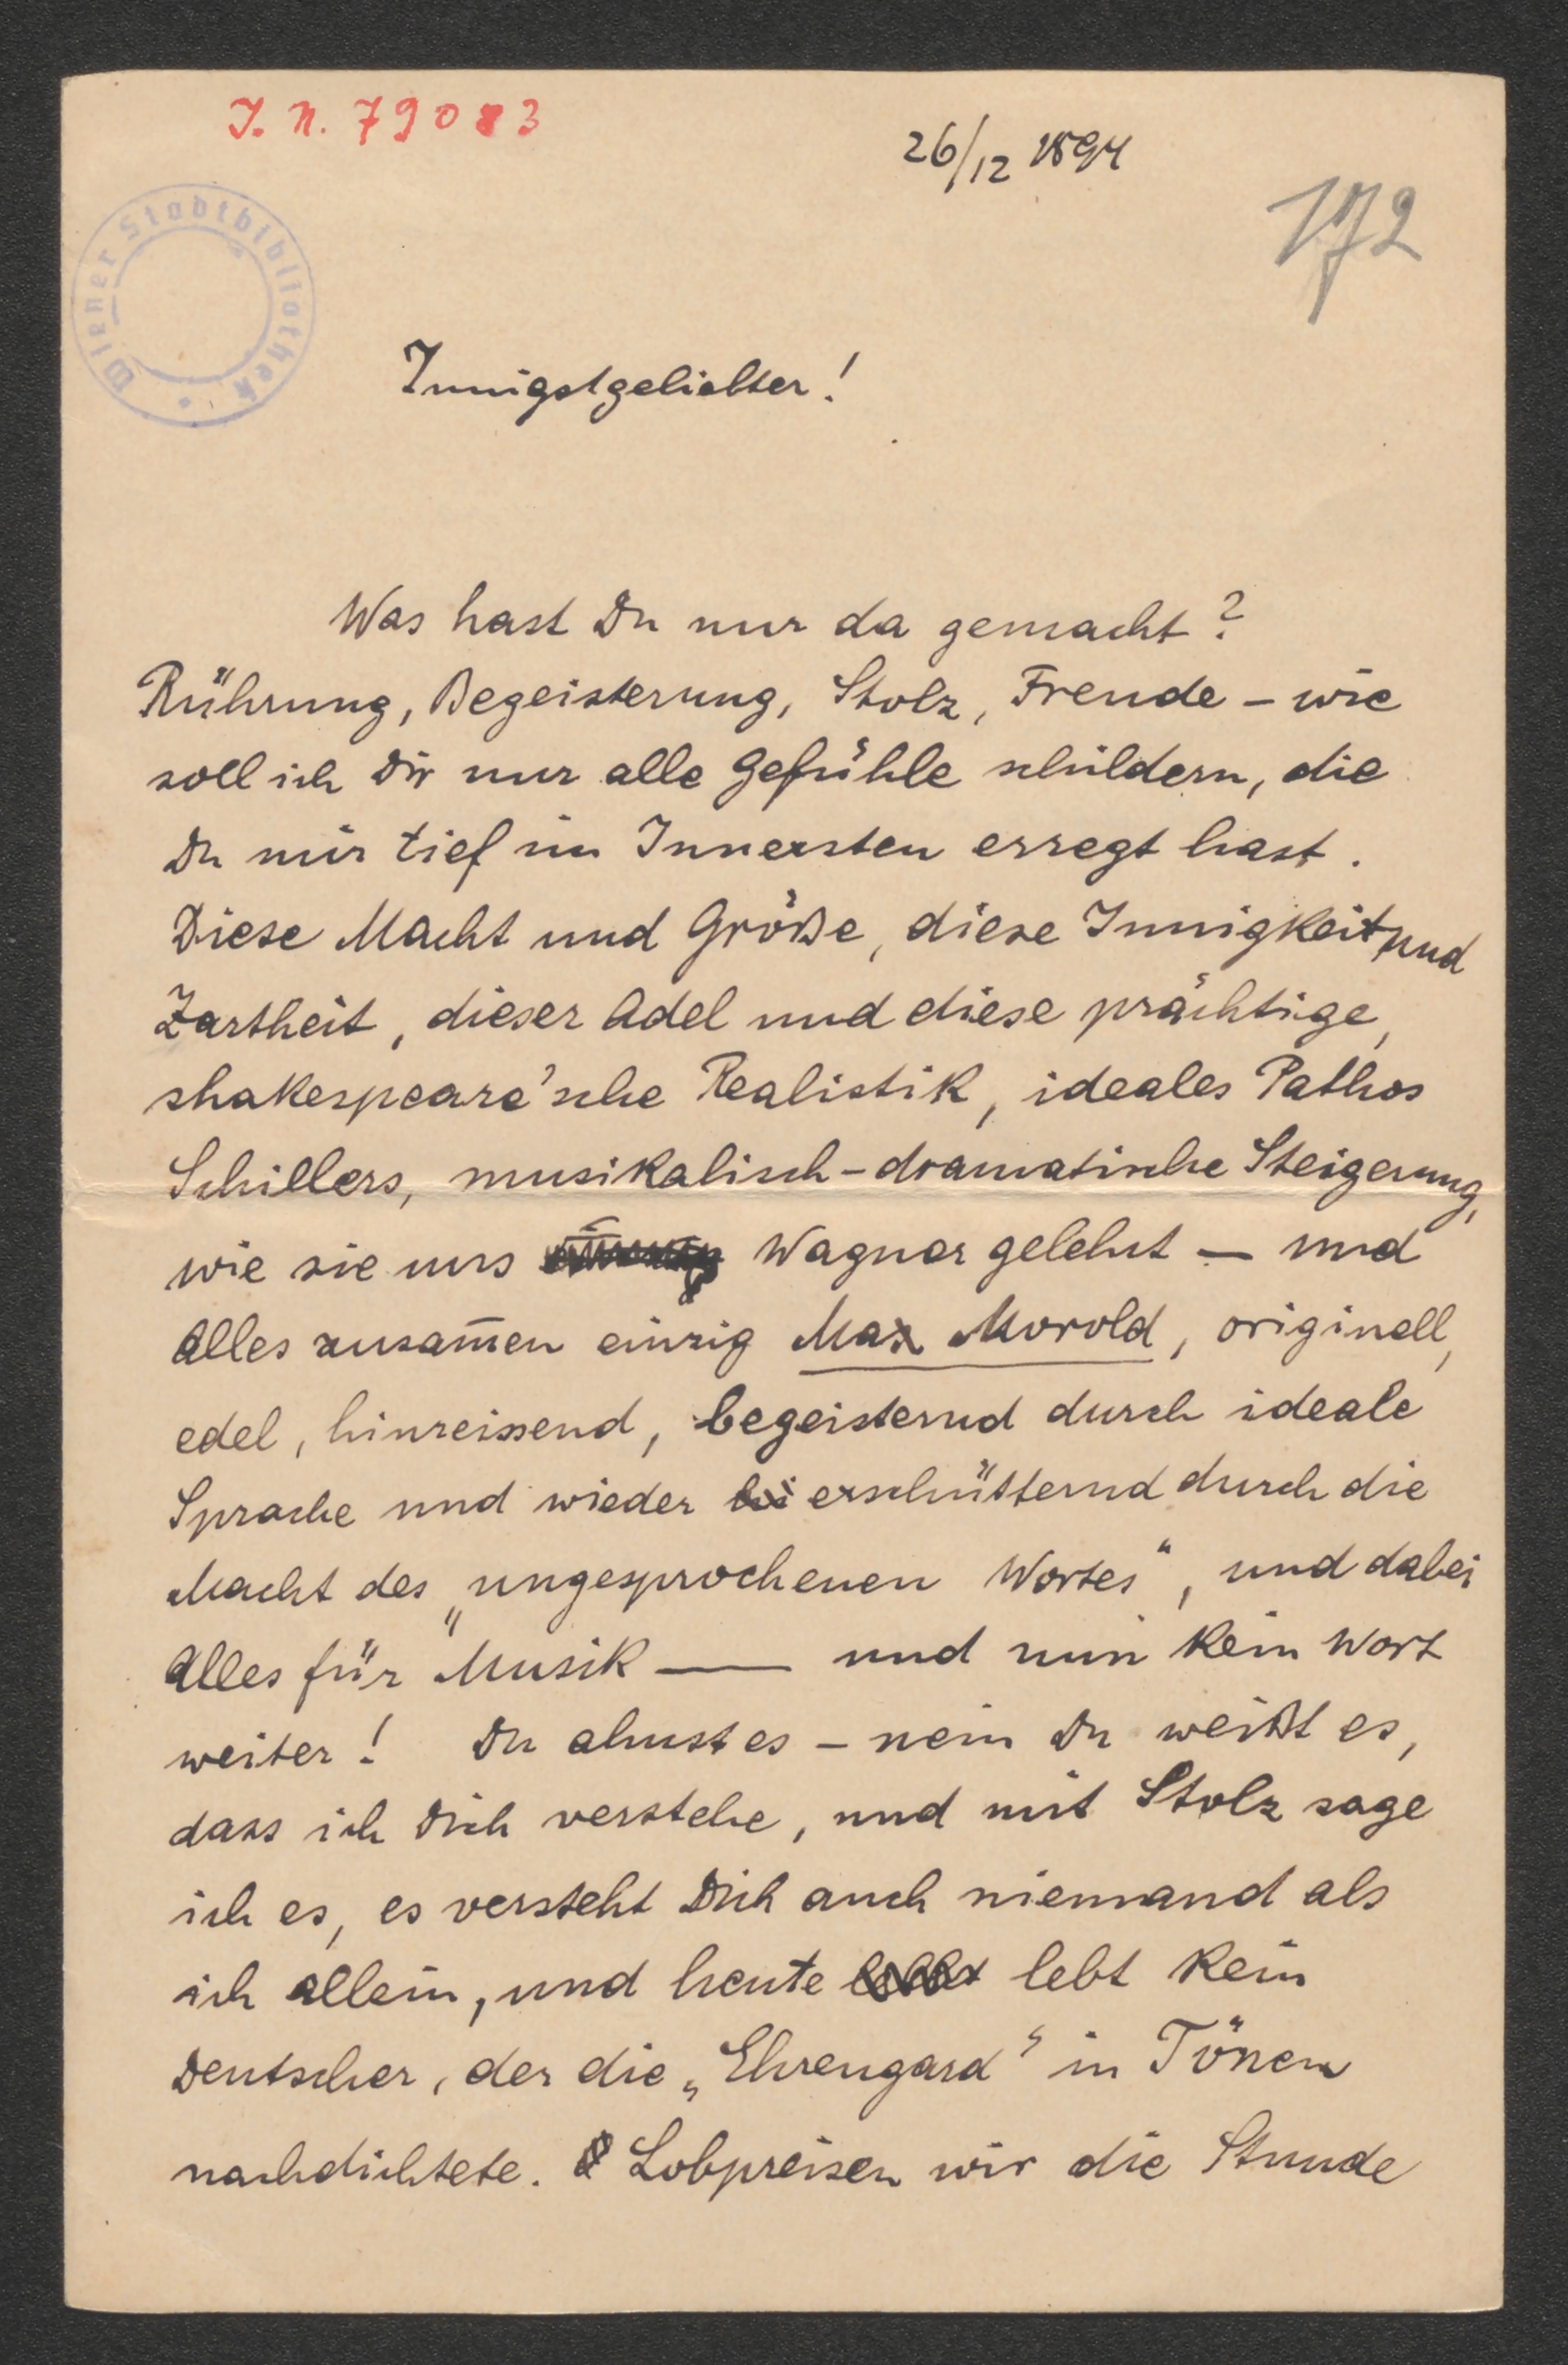 I. N. 79083
26/12 1894
172
Wiener Stadtbibliothek
Innigstgeliebter!
Was hast Du nur da gemacht?
Rührung, Begeisterung, Stolz, Freude – wie
soll ich Dir nur alle Gefühle schildern, die
Du mir tief im Innersten erregt hast.
Diese Macht und Größe, diese Innigkeit und
Zartheit, dieser Adel und diese prächtige,
shakespeare'sche Realistik, ideales Pathos
Schillers, musikalisch-dramatische Steigerung,
wie sie uns Wagner gelehrt – und
Alles zusam̄en einzig Max Morold, originell,
edel, hinreissend, begeisternd durch ideale
Sprache und wieder erschütternd durch die
Macht des „ungesprochenen Wortes“, und dabei
Alles für Musik — und nun kein Wort
weiter! Du ahnst es – nein Du weißt es,
dass ich Dich verstehe, und mit Stolz sage
ich es, es versteht Dich auch niemand als
ich allein, und heute lebt kein
Deutscher, der die „Ehrengard“ in Tönen
nachdichtete. Lobpreisen wir die Stunde